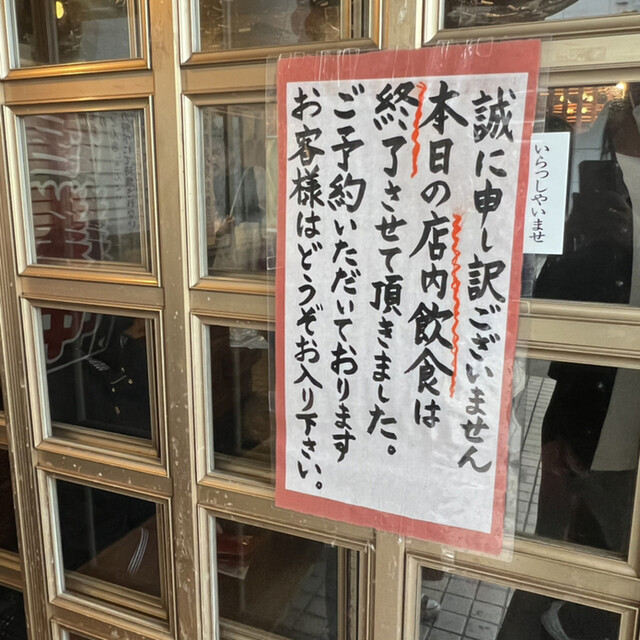 誠に申し訳ございません
本日の店内飲食は
終了させて頂きました。
ご予約いただいております
お客様はどうぞお入り下さい。
いらっしゃいませ